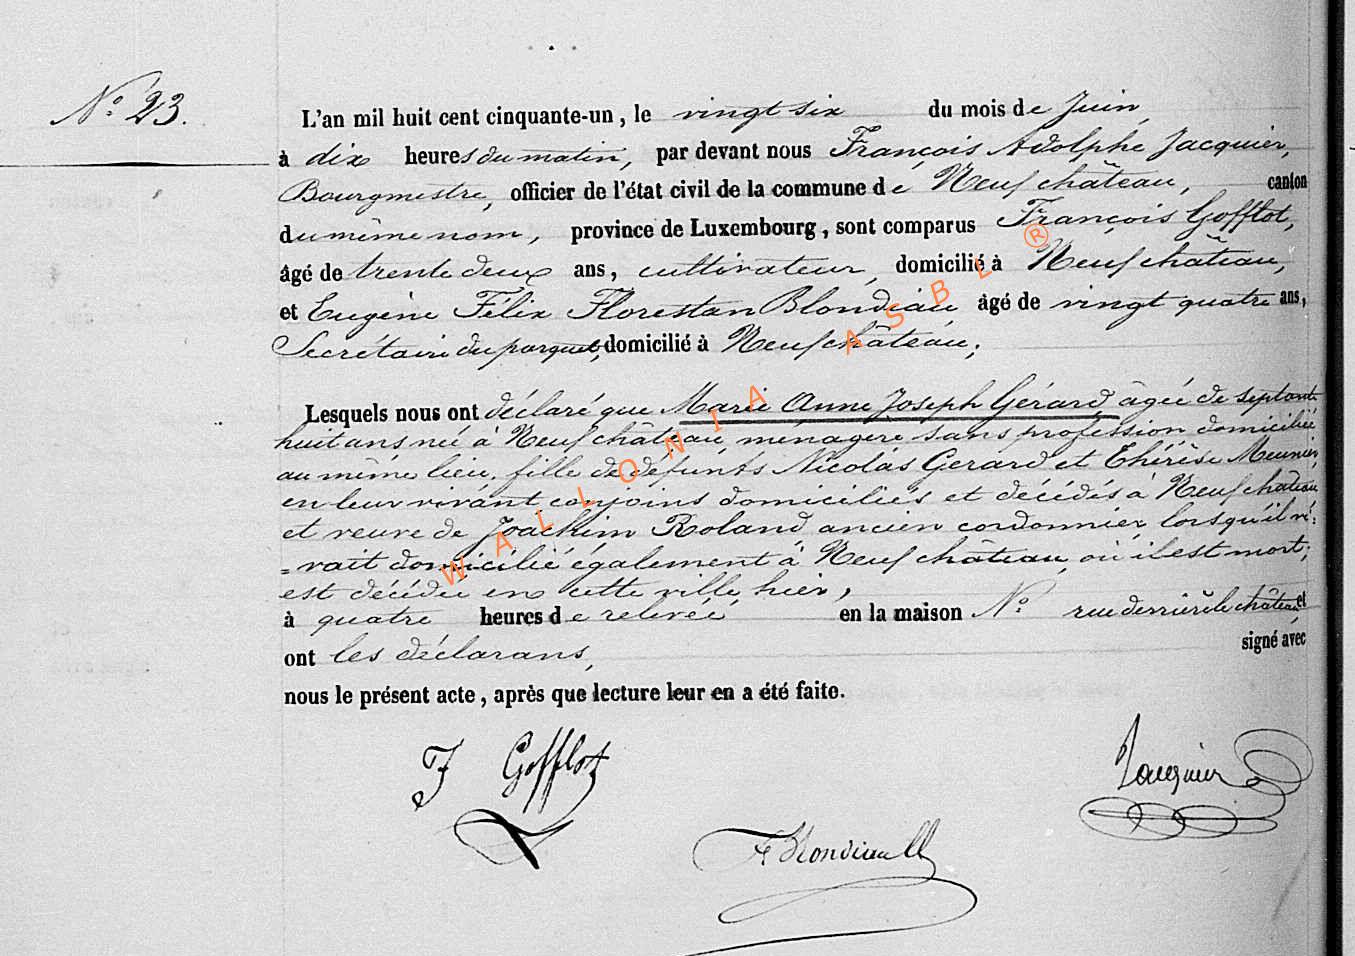 N.º 23.
L'an mil huit cent cinquante-un, le vingt six du mois de Juin,
à dix heures du matin, par devant nous François Adolphe Jacquier,
Bourgmestre, officier de l'état civil de la commune de Neufchâteau, canton
du même nom, province de Luxembourg, sont comparus François Gofflot,
âgé de trente deux ans, cultivateur, domicilié à Neufchâteau,
et Eugène Félix Florestan Blondiau âgé de vingt quatre ans,
Secrétaire du parquet, domicilié à Neufchâteau;
Lesquels nous ont déclaré que Marie Anne Joseph Gérard, âgée de septante
huit ans née à Neufchâteau ménagère sans profession domiciliée
au même lieu, fille de défunts Nicolas Gerard et Thérèse Meunier,
en leur vivant conjoins domiciliés et décédés à Neufchâteau
et veuve de Joachim Roland ancien cordonnier, lorsqu'il vi=
=vait domicilié également à Neufchâteau, où il est mort;
est décédée en cette ville, hier,
à quatre heures de relevée, en la maison N.º rue derrière le château, et
ont les déclarans, signé avec
nous le présent acte, après que lecture leur en a été faite.
F Gofflot
Jacquier
F Blondiau
WALLONIA ASBL ®